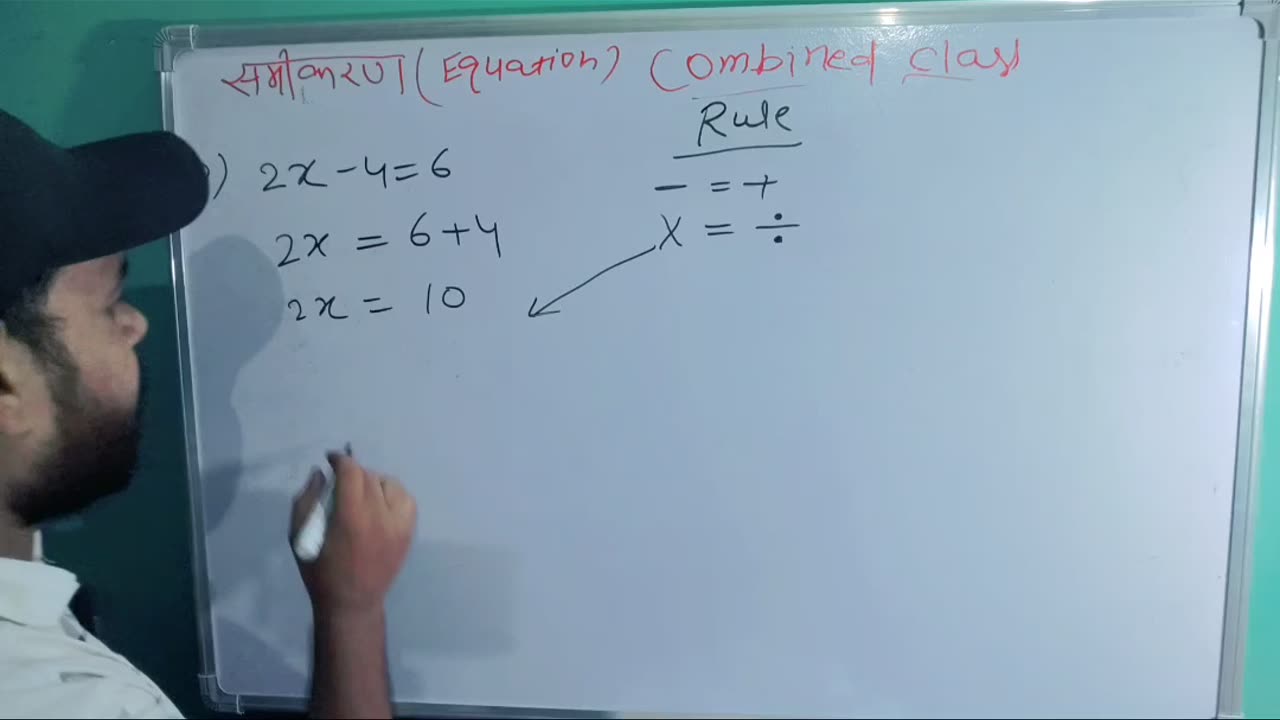 समीकरण (Equation) Combined class
) 2x - 4 = 6
2x = 6 + 4
2x = 10
Rule
- = +
x = ÷